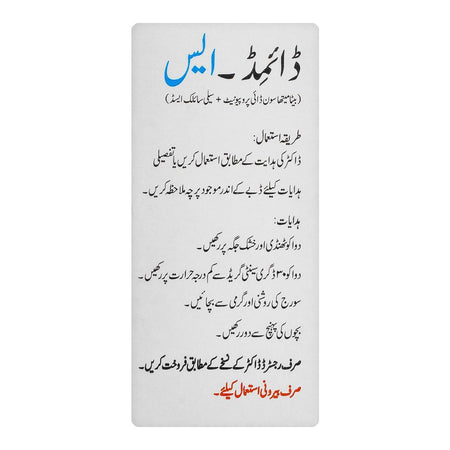 ڈائمِڈ ۔ ایس
(بیٹامیتھاسون ڈائی پروپیونیٹ + سیلی سائلک ایسڈ)
طریقہ استعمال:
ڈاکٹر کی ہدایت کے مطابق استعمال کریں یا تفصیلی
ہدایات کیلئے ڈبے کے اندر موجود پرچہ ملاحظہ کریں۔
ہدایات:
دوا کو ٹھنڈی اور خشک جگہ پر رکھیں۔
دوا کو ۳۰ ڈگری سینٹی گریڈ سے کم درجہ حرارت پر رکھیں۔
سورج کی روشنی اور گرمی سے بچائیں۔
بچوں کی پہنچ سے دور رکھیں۔
صرف رجسٹرڈ ڈاکٹر کے نسخے کے مطابق فروخت کریں۔
صرف بیرونی استعمال کیلئے۔